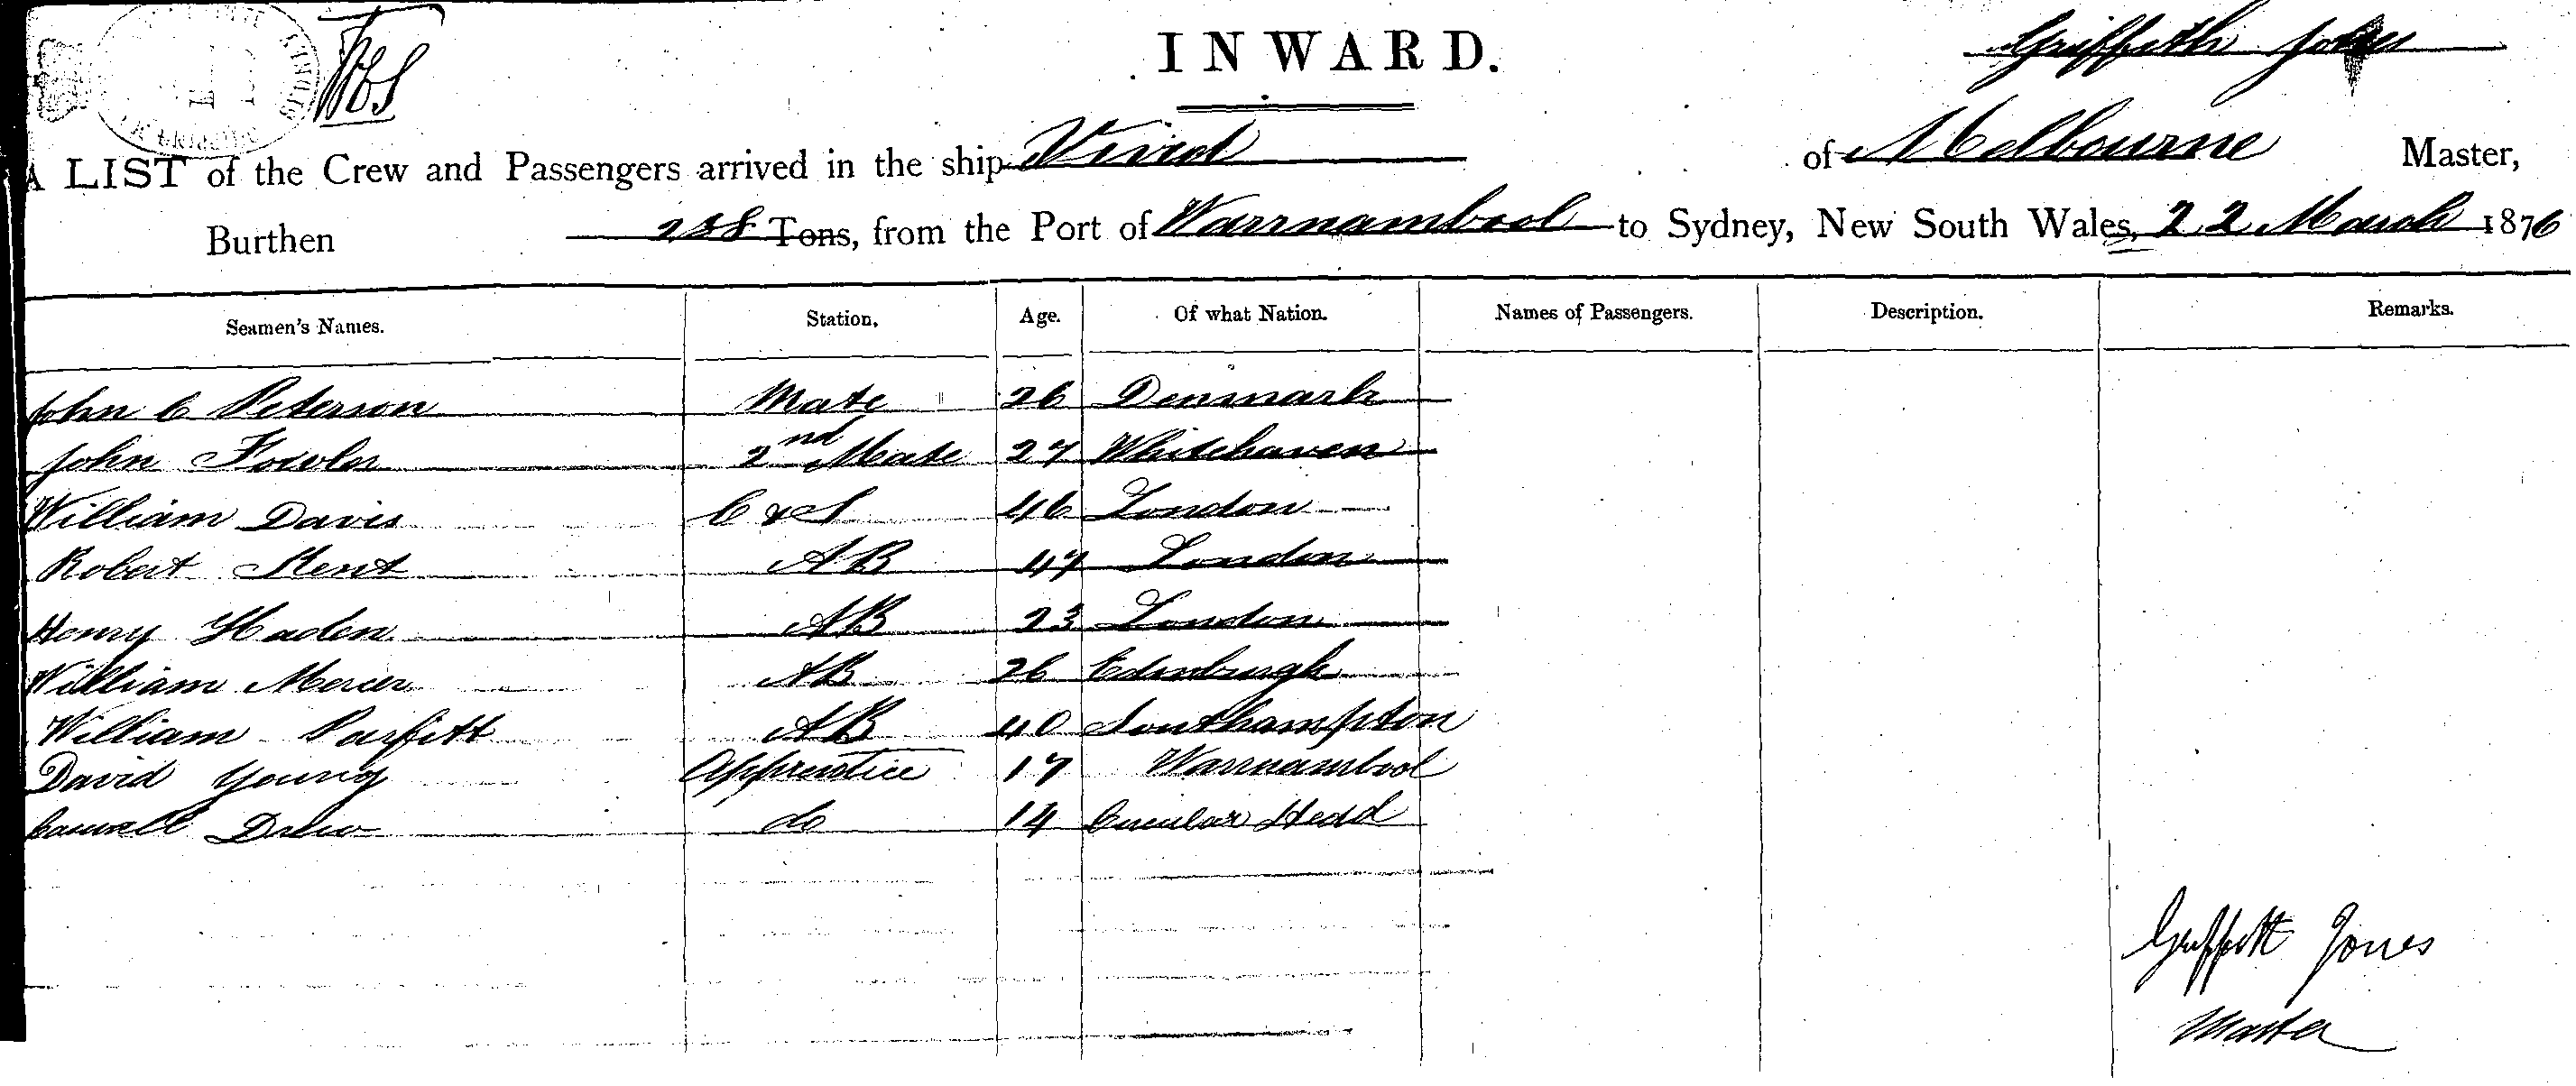 INWARD.
Griffith Jones
A LIST of the Crew and Passengers arrived in the ship Vivid of Melbourne Master,
Burthen 238 Tons, from the Port of Warrnambool to Sydney, New South Wales, 22 March 1876
Seamen's Names. Station. Age. Of what Nation. Names of Passengers. Description. Remarks.
John C Peterson Mate 26 Denmark
John Fowler 2nd Mate 27 Whitehaven
William Davis C & S 46 London
Robert Kent AB 47 London
Henry Haden AB 23 London
William Mercer AB 26 Edinburgh
William Parfitt AB 40 Southampton
David Young Apprentice 17 Warrnambool
Drew do 14 Circular Hedd
Griffith Jones
Master